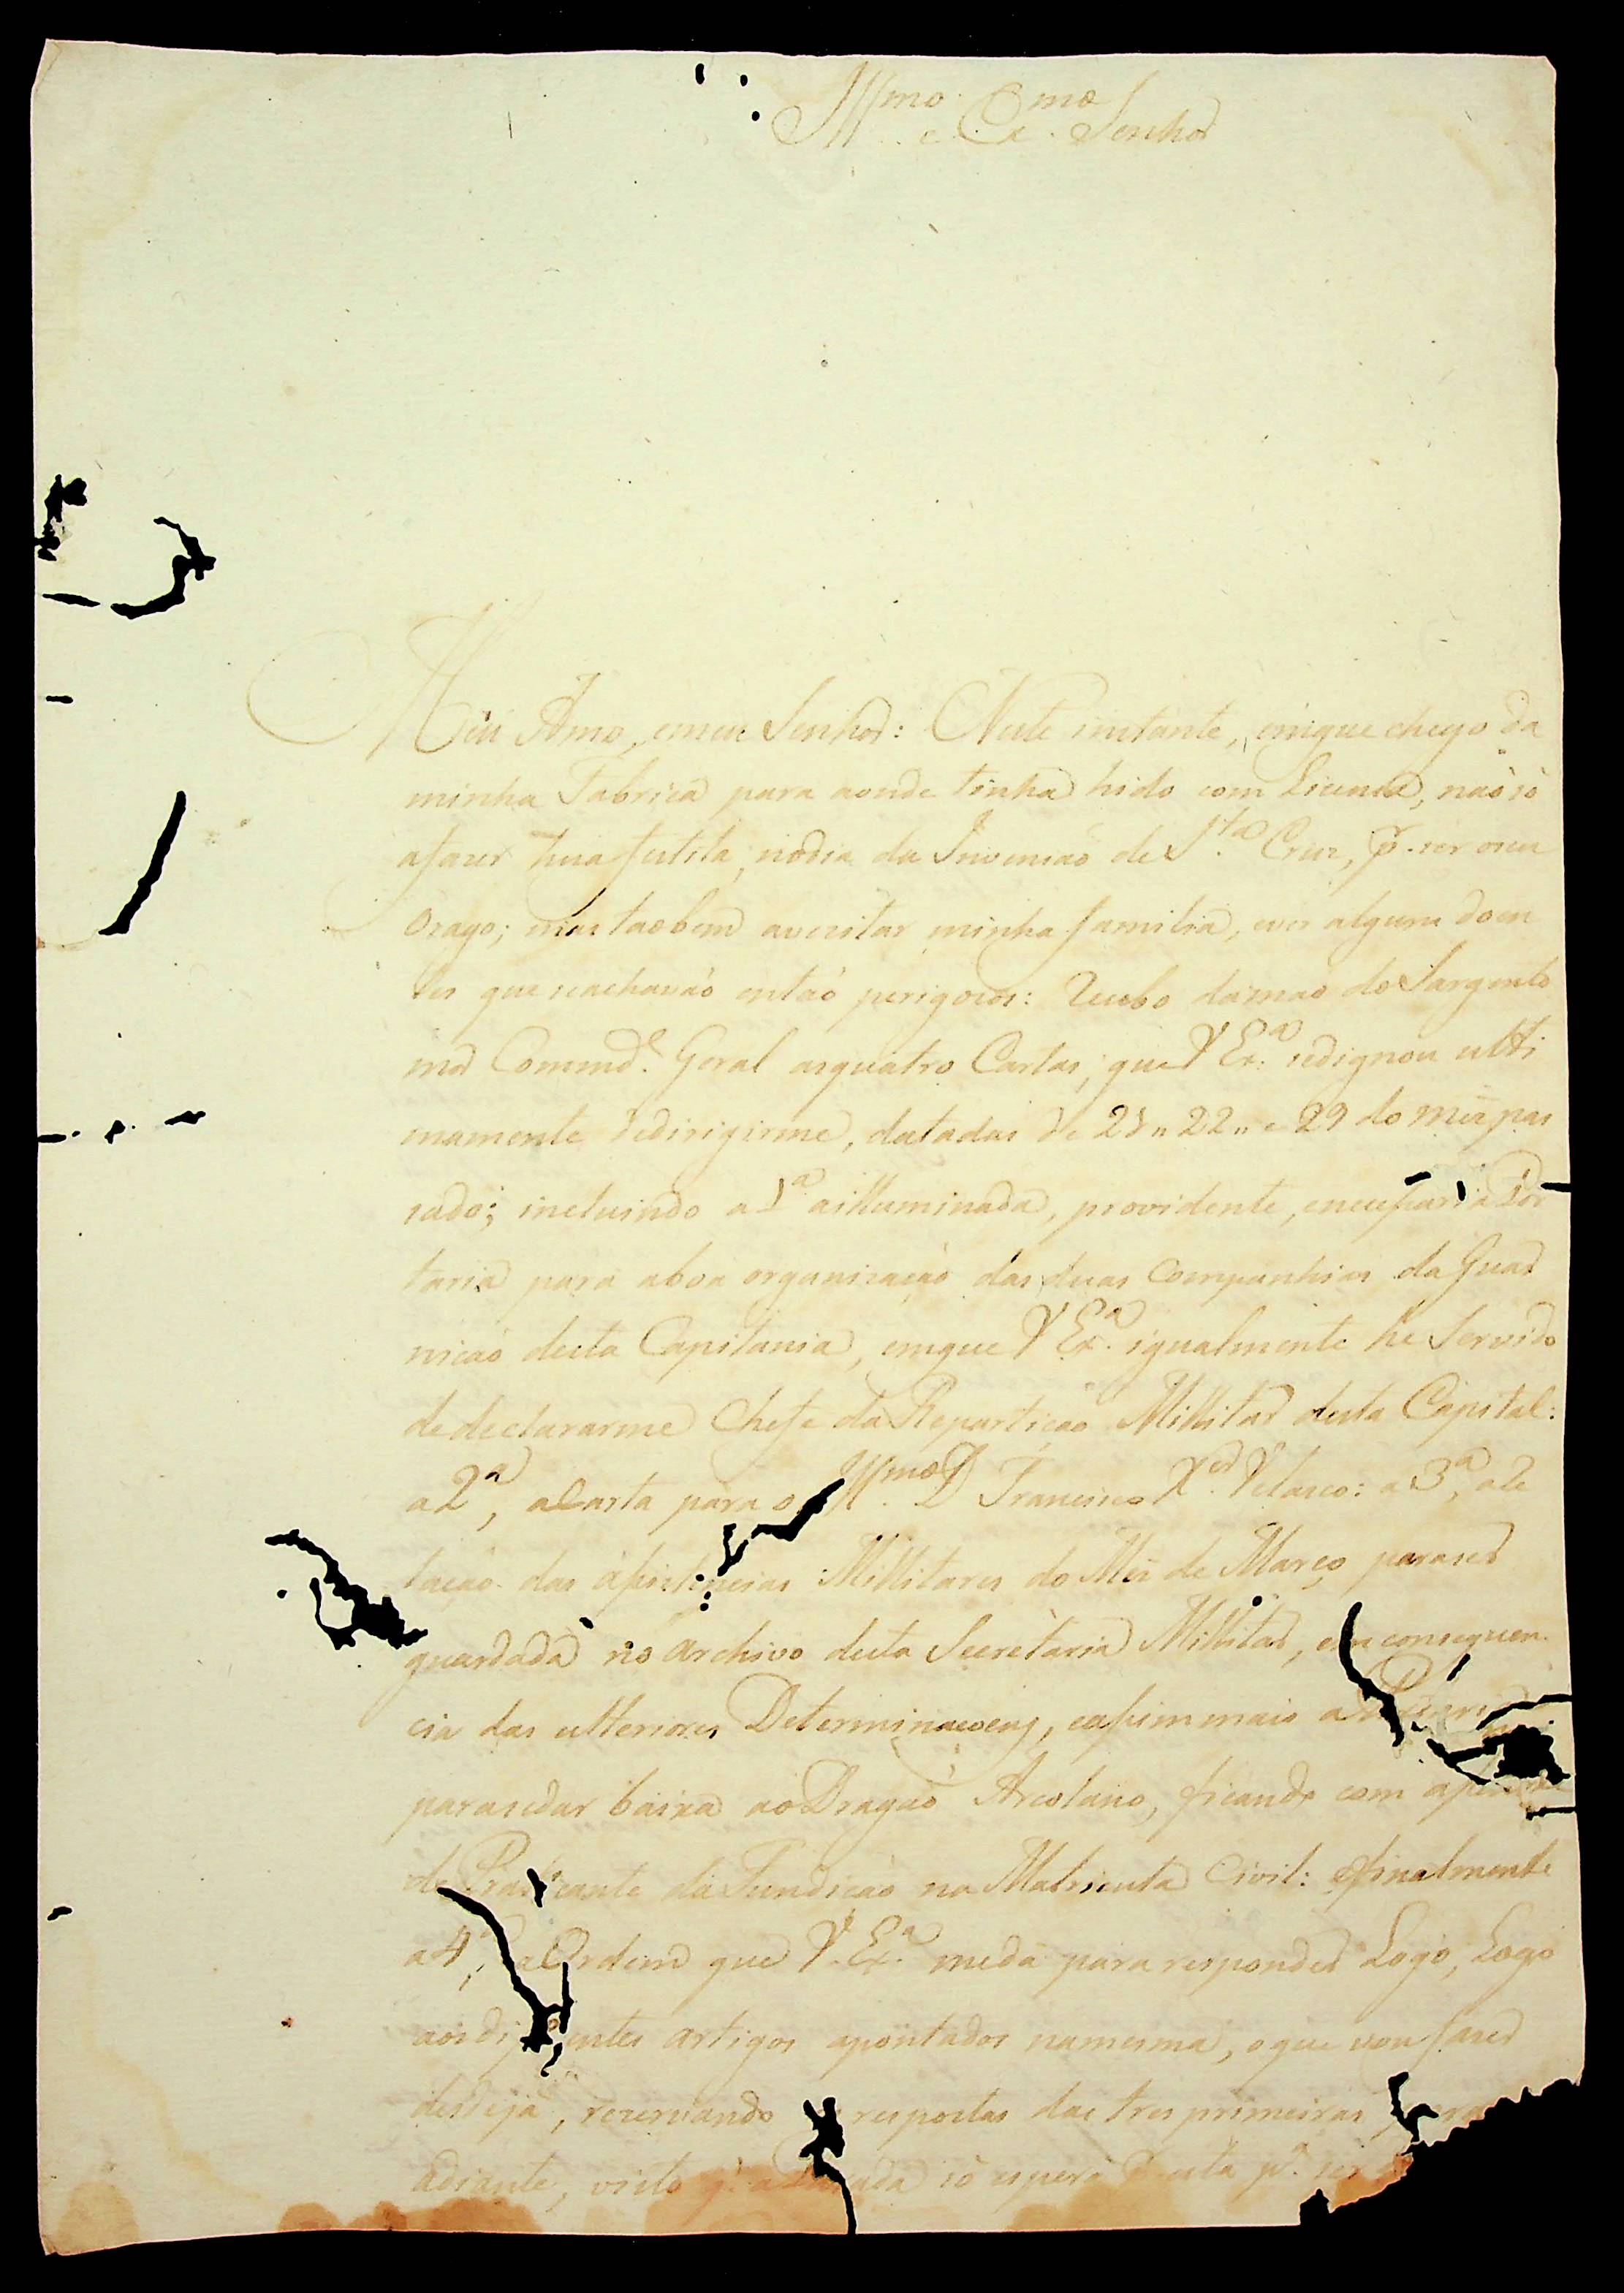 Illmo. e Exmo. Senhor
Meu Amo, emeu Senhor: Neste instante, emque chego da
minha Fabrica para aonde tinha hido com Licença, não só
afazer hua festa, nodia da Invensaõ de Sta. Cruz, pr. ser oseu
Orago; mas taobem avezitar minha familia, ever alguns doen
tes que seachavaõ entaõ perigozos: Recebo damaõ do Sargento
mor Commde. Geral asquatro Cartas, que V Exa. sedignou ulti
mamente dedirigirme, datadas de 21,, 22,, e 29 do mez pas
sado; incluindo a 1a. ailluminada, providente, enecessaria Por
taria para aboa organizaçaõ das duas Companhias da Guar
niçaõ desta Capitania, emque V Exa. igualmente he Servido
dedeclararme Chefe da Repartiçaõ Millitar desta Capital:
a 2a, aCarta para o Illmo. D Francisco Xer. Velasco: a 3a, aRe
laçaõ das asistencias Millitares do Mez de Março paraser
guardada no archivo desta Secretaria Millitar, em consequen
cia das ulteriores Determinaçoens, easim mais a
parasedar baixa aoDragaõ Arcolano, ficando com a
de Praticante da Fundiçaõ na Matricula Civil: efinalmente
a 4a, aOrdem que V. Exa. meda para responder Logo, Logo
aos diferentes artigos apontados namesma, oque vou fazer
desdeja, rezervando as respostas das tres primeiras para
adiante, visto q. a Parada só espera esta pa. ser